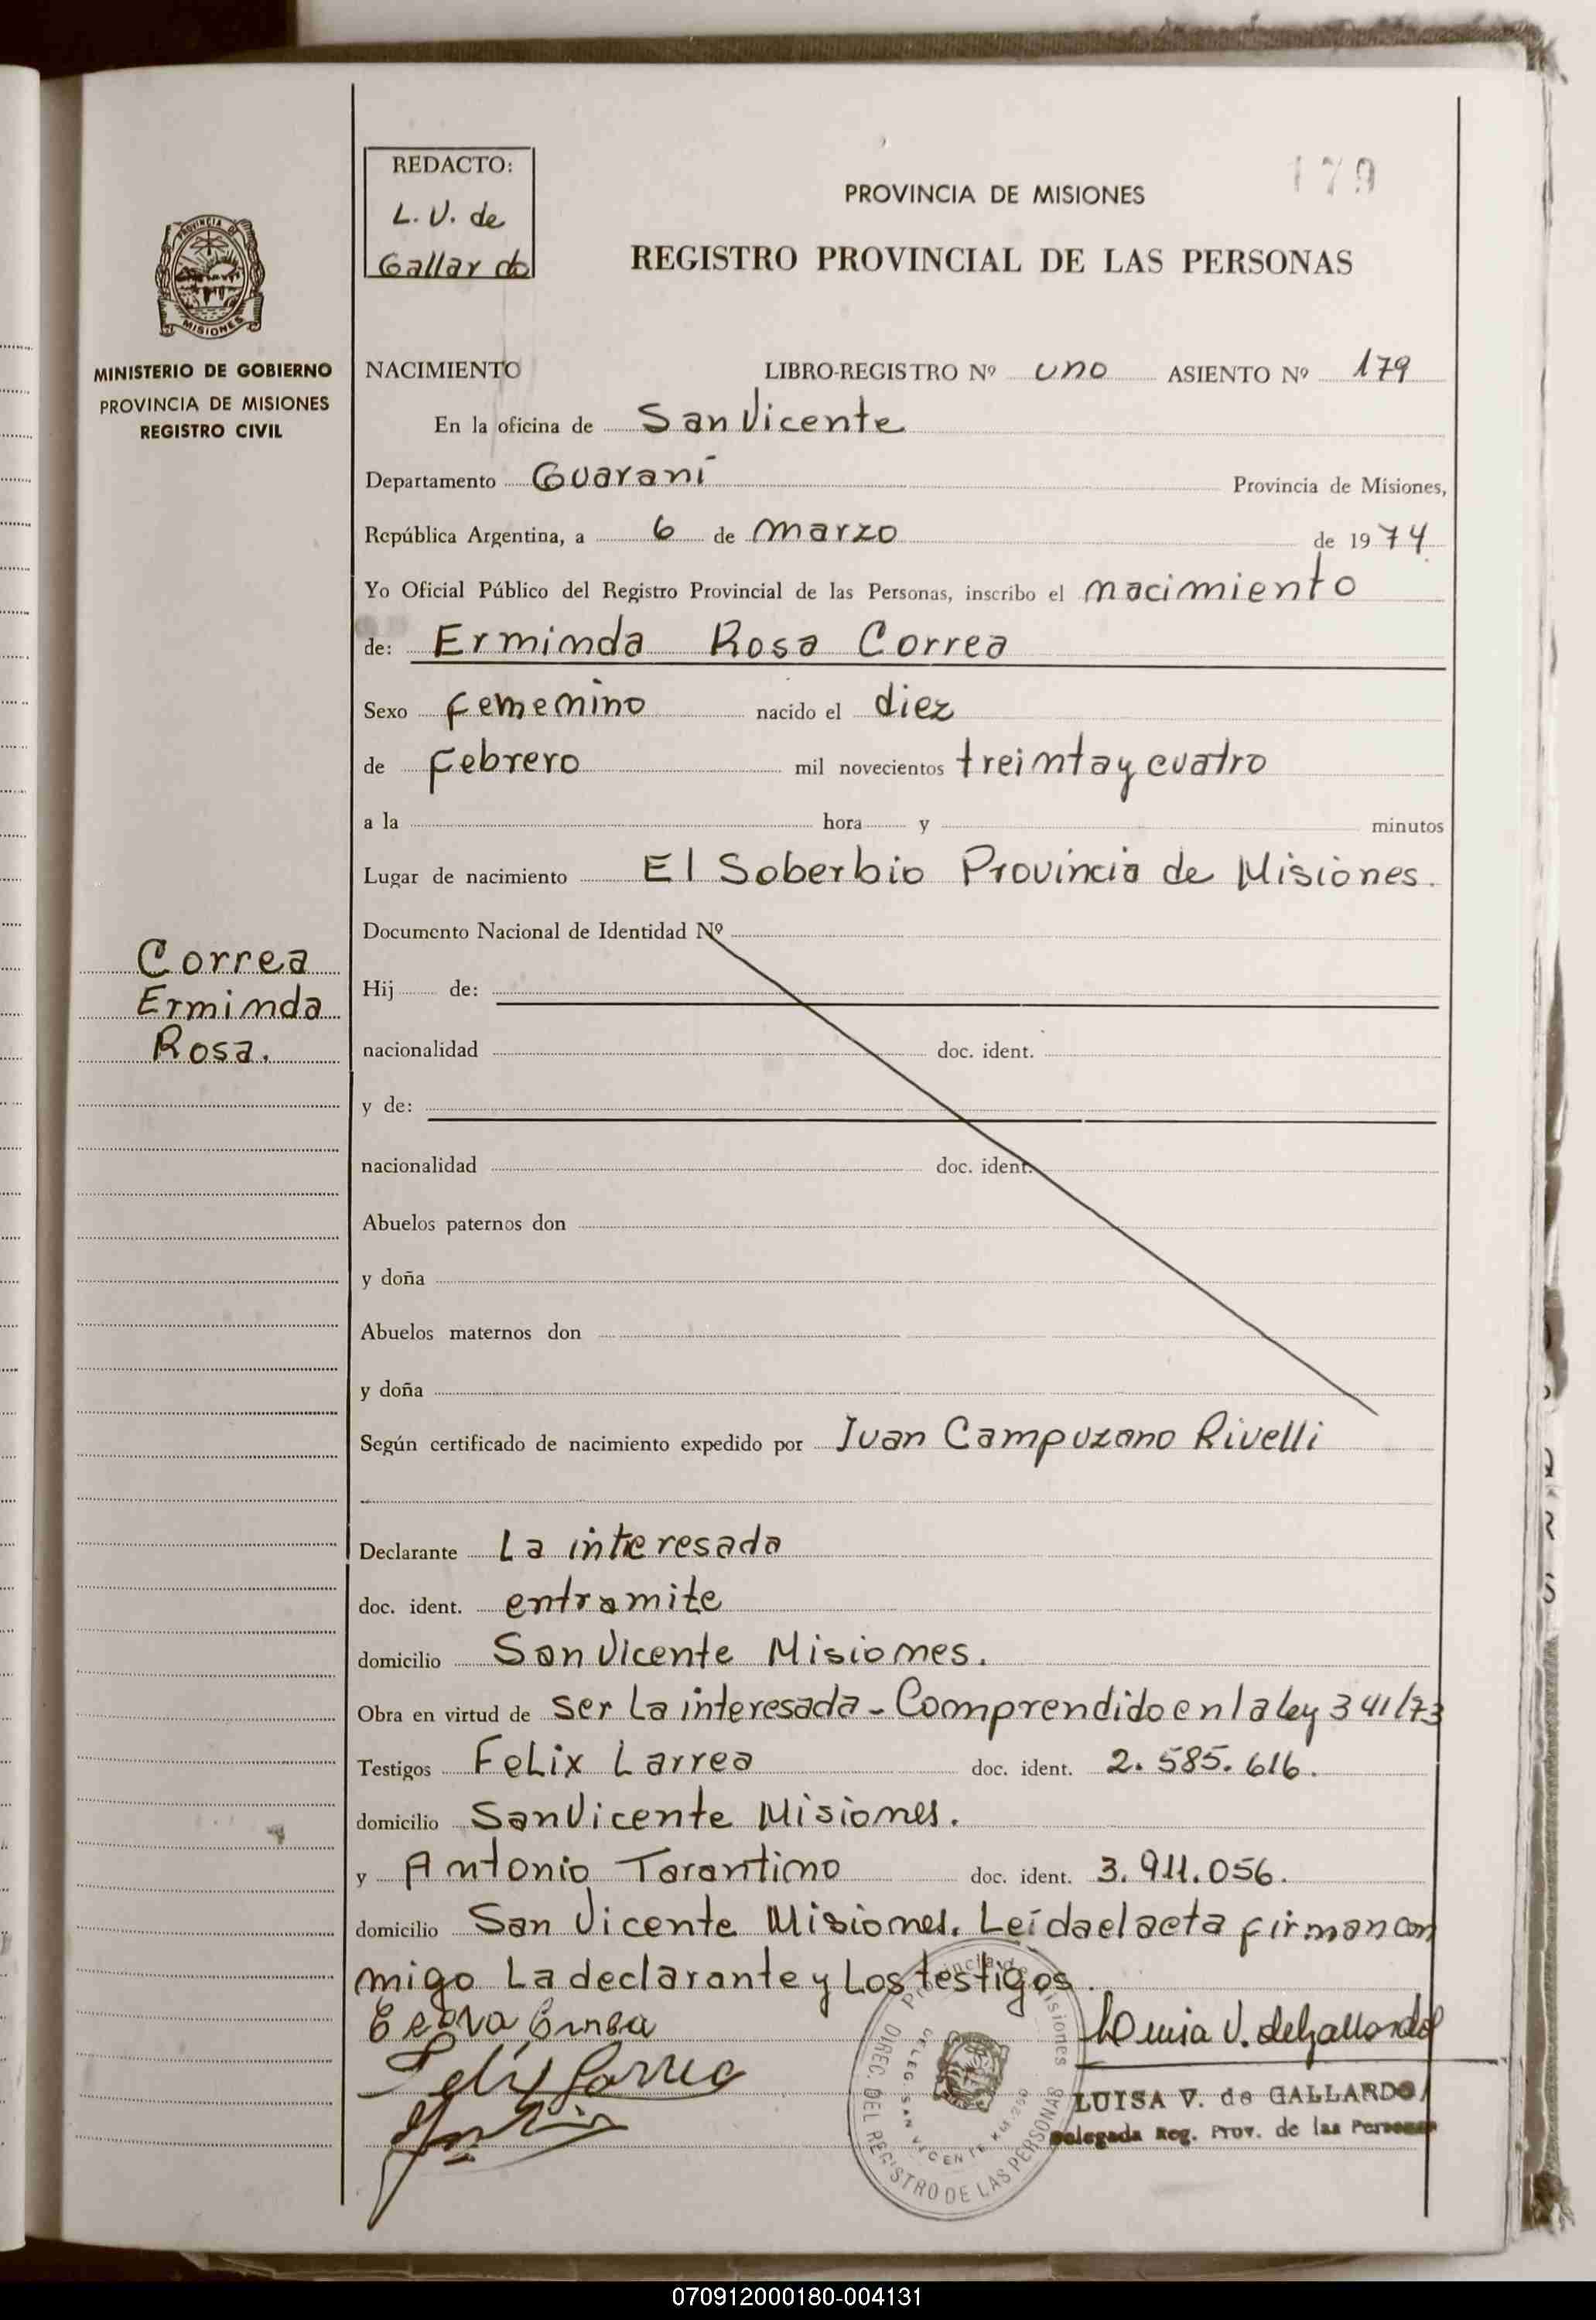 REDACTO:
L. V. de
Gallardo
179
PROVINCIA DE MISIONES
REGISTRO PROVINCIAL DE LAS PERSONAS
PROVINCIA DE
MISIONES
MINISTERIO DE GOBIERNO
PROVINCIA DE MISIONES
REGISTRO CIVIL
NACIMIENTO LIBRO-REGISTRO Nº uno ASIENTO Nº 179
En la oficina de San Vicente
Departamento Guaraní Provincia de Misiones,
República Argentina, a 6 de marzo de 1974
Yo Oficial Público del Registro Provincial de las Personas, inscribo el nacimiento
de: Erminda Rosa Correa
Sexo femenino nacido el diez
de febrero mil novecientos treinta y cuatro
a la hora y minutos
Lugar de nacimiento El Soberbio Provincia de Misiones.
Documento Nacional de Identidad Nº
Correa
Erminda
Rosa.
Hij de:
nacionalidad doc. ident.
y de:
nacionalidad doc. ident.
Abuelos paternos don
y doña
Abuelos maternos don
y doña
Según certificado de nacimiento expedido por Juan Campuzano Rivelli
Declarante La interesada
doc. ident. entramite
domicilio San Vicente Misiones.
Obra en virtud de ser La interesada - Comprendido en la ley 341/73
Testigos Felix Larrea doc. ident. 2.585.616.
domicilio San Vicente Misiones.
y Antonio Tarantino doc. ident. 3.911.056.
domicilio San Vicente Misiones. Leída el acta firman con
migo La declarante y Los testigos.
Felix Larrea
Luisa V. de Gallardo
Provincia de Misiones
DIREC. DEL REGISTRO DE LAS PERSONAS
DELEG. SAN VICENTE KM. 260
LUISA V. de GALLARDO
Delegada Reg. Prov. de las Personas
070912000180-004131